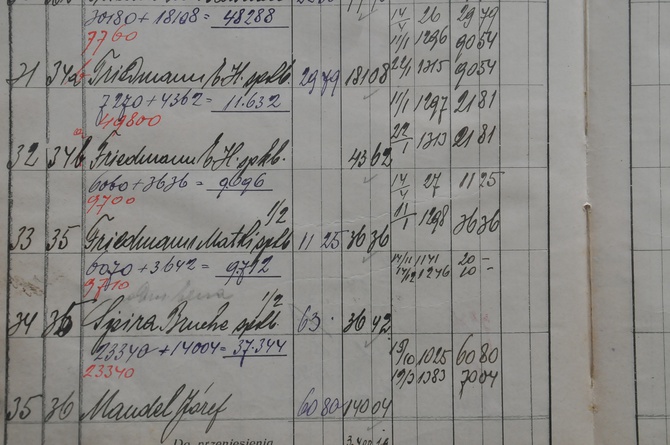 30180 + 18108 = 48288
14/4 26 29 79
7760
11/1 1296 9054
31 34a Friedmann H. spkb. 29 79 18108
22/1 1315 9054
7270 + 4362 = 11.632
11/1 1297 2181
49800
22/1 1313 2181
32 34b Friedmann H. spkb. 43 62
6060 + 3636 = 9696
14/4 27 11 25
9700
1/2
11/1 1298 3636
33 35 Friedmann spkb 11 25 36 36
6070 + 3642 = 9712
14/11 1171 20 -
14/12 1246 10 -
9710
1/2
34 35 Spira spkb. 63. 36 42
23340 + 14004 = 37.344
19/10 1025 60 80
23340
19/3 1383 7004
35 36 Mandel Józef 60 80 14004
Do przeniesienia